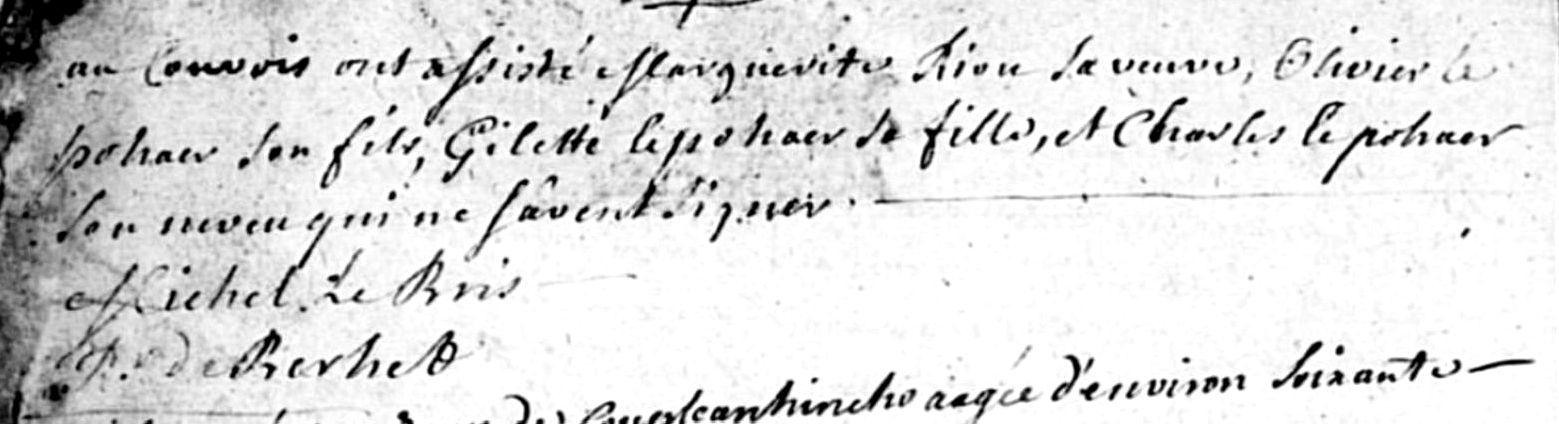 au Convois ont assisté Marguerite Riou Sa veuve, Olivier le
pohaer Son fils, Gilette le pohaer Sa fille, et Charles le pohaer
Son neveu qui ne Savent Signer.
Michel Le Bris
de Berhet
aagée d'environ Soixante